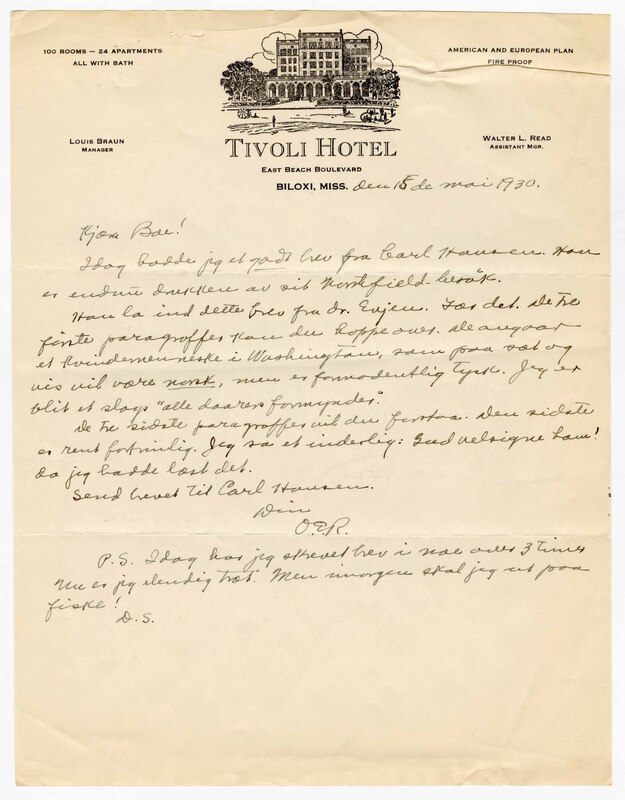 100 ROOMS — 24 APARTMENTS
ALL WITH BATH
AMERICAN AND EUROPEAN PLAN
FIRE PROOF
LOUIS BRAUN
MANAGER
WALTER L. READ
ASSISTANT MGR.
TIVOLI HOTEL
EAST BEACH BOULEVARD
BILOXI, MISS. den 15de mai 1930.
Kjære Boe!
Idag hadde jeg et godt brev fra Carl Hansen. Han
er endnu drukken av sit Northfield-besøk.
Han la ind dette brev fra dr. Evjen. Læs det. De tre
første paragraffer kan du hoppe over. De angaar
et kvindemenneske i Washington, som paa sæt og
vis vil være norsk, men er formodentlig tysk. Jeg er
blit et slags "alle daarers formynder".
De tre sidste paragraffer vil du forstaa. Den sidste
er rent fortrinlig. Jeg sa et inderlig: Gud velsigne ham!
da jeg hadde læst det.
Send brevet til Carl Hansen.
Din
O.E.R.
P.S. Idag har jeg skrevet brev i noe over 3 timer
Nu er jeg elendig træt. Men imorgen skal jeg ut paa
fiske!
D.S.